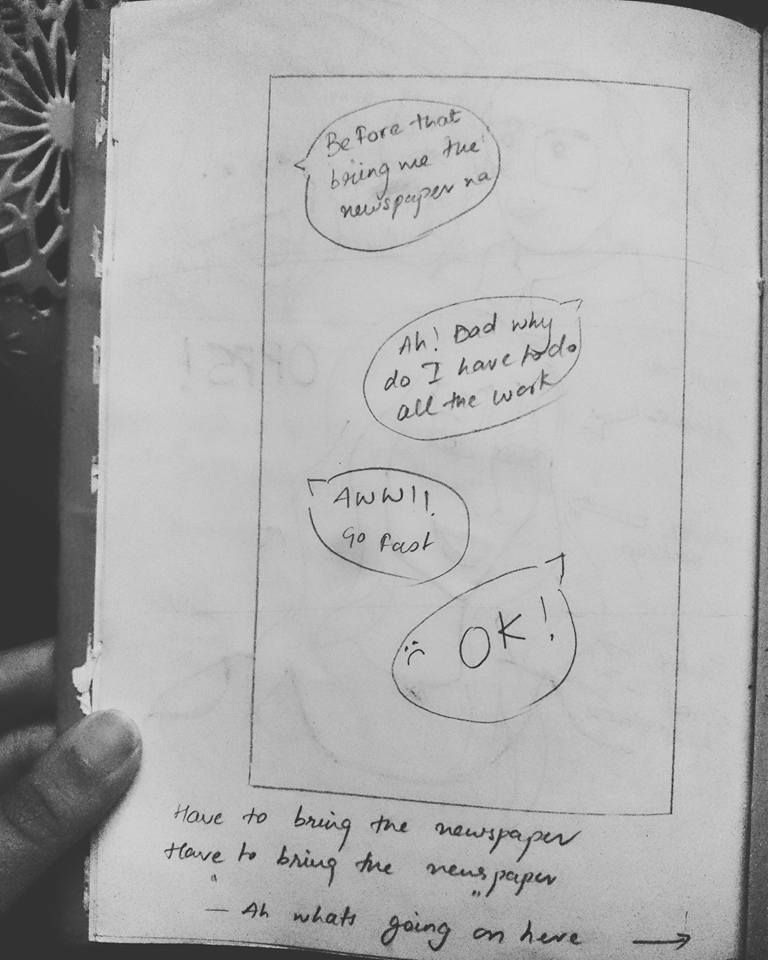 Before that
bring me the
newspaper na
Ah! Dad why
do I have to do
all the work
AWW!!
Go Fast
:( OK!
Have to bring the newspaper
Have to bring the newspaper
" "
— Ah whats going on here →
OPPS!